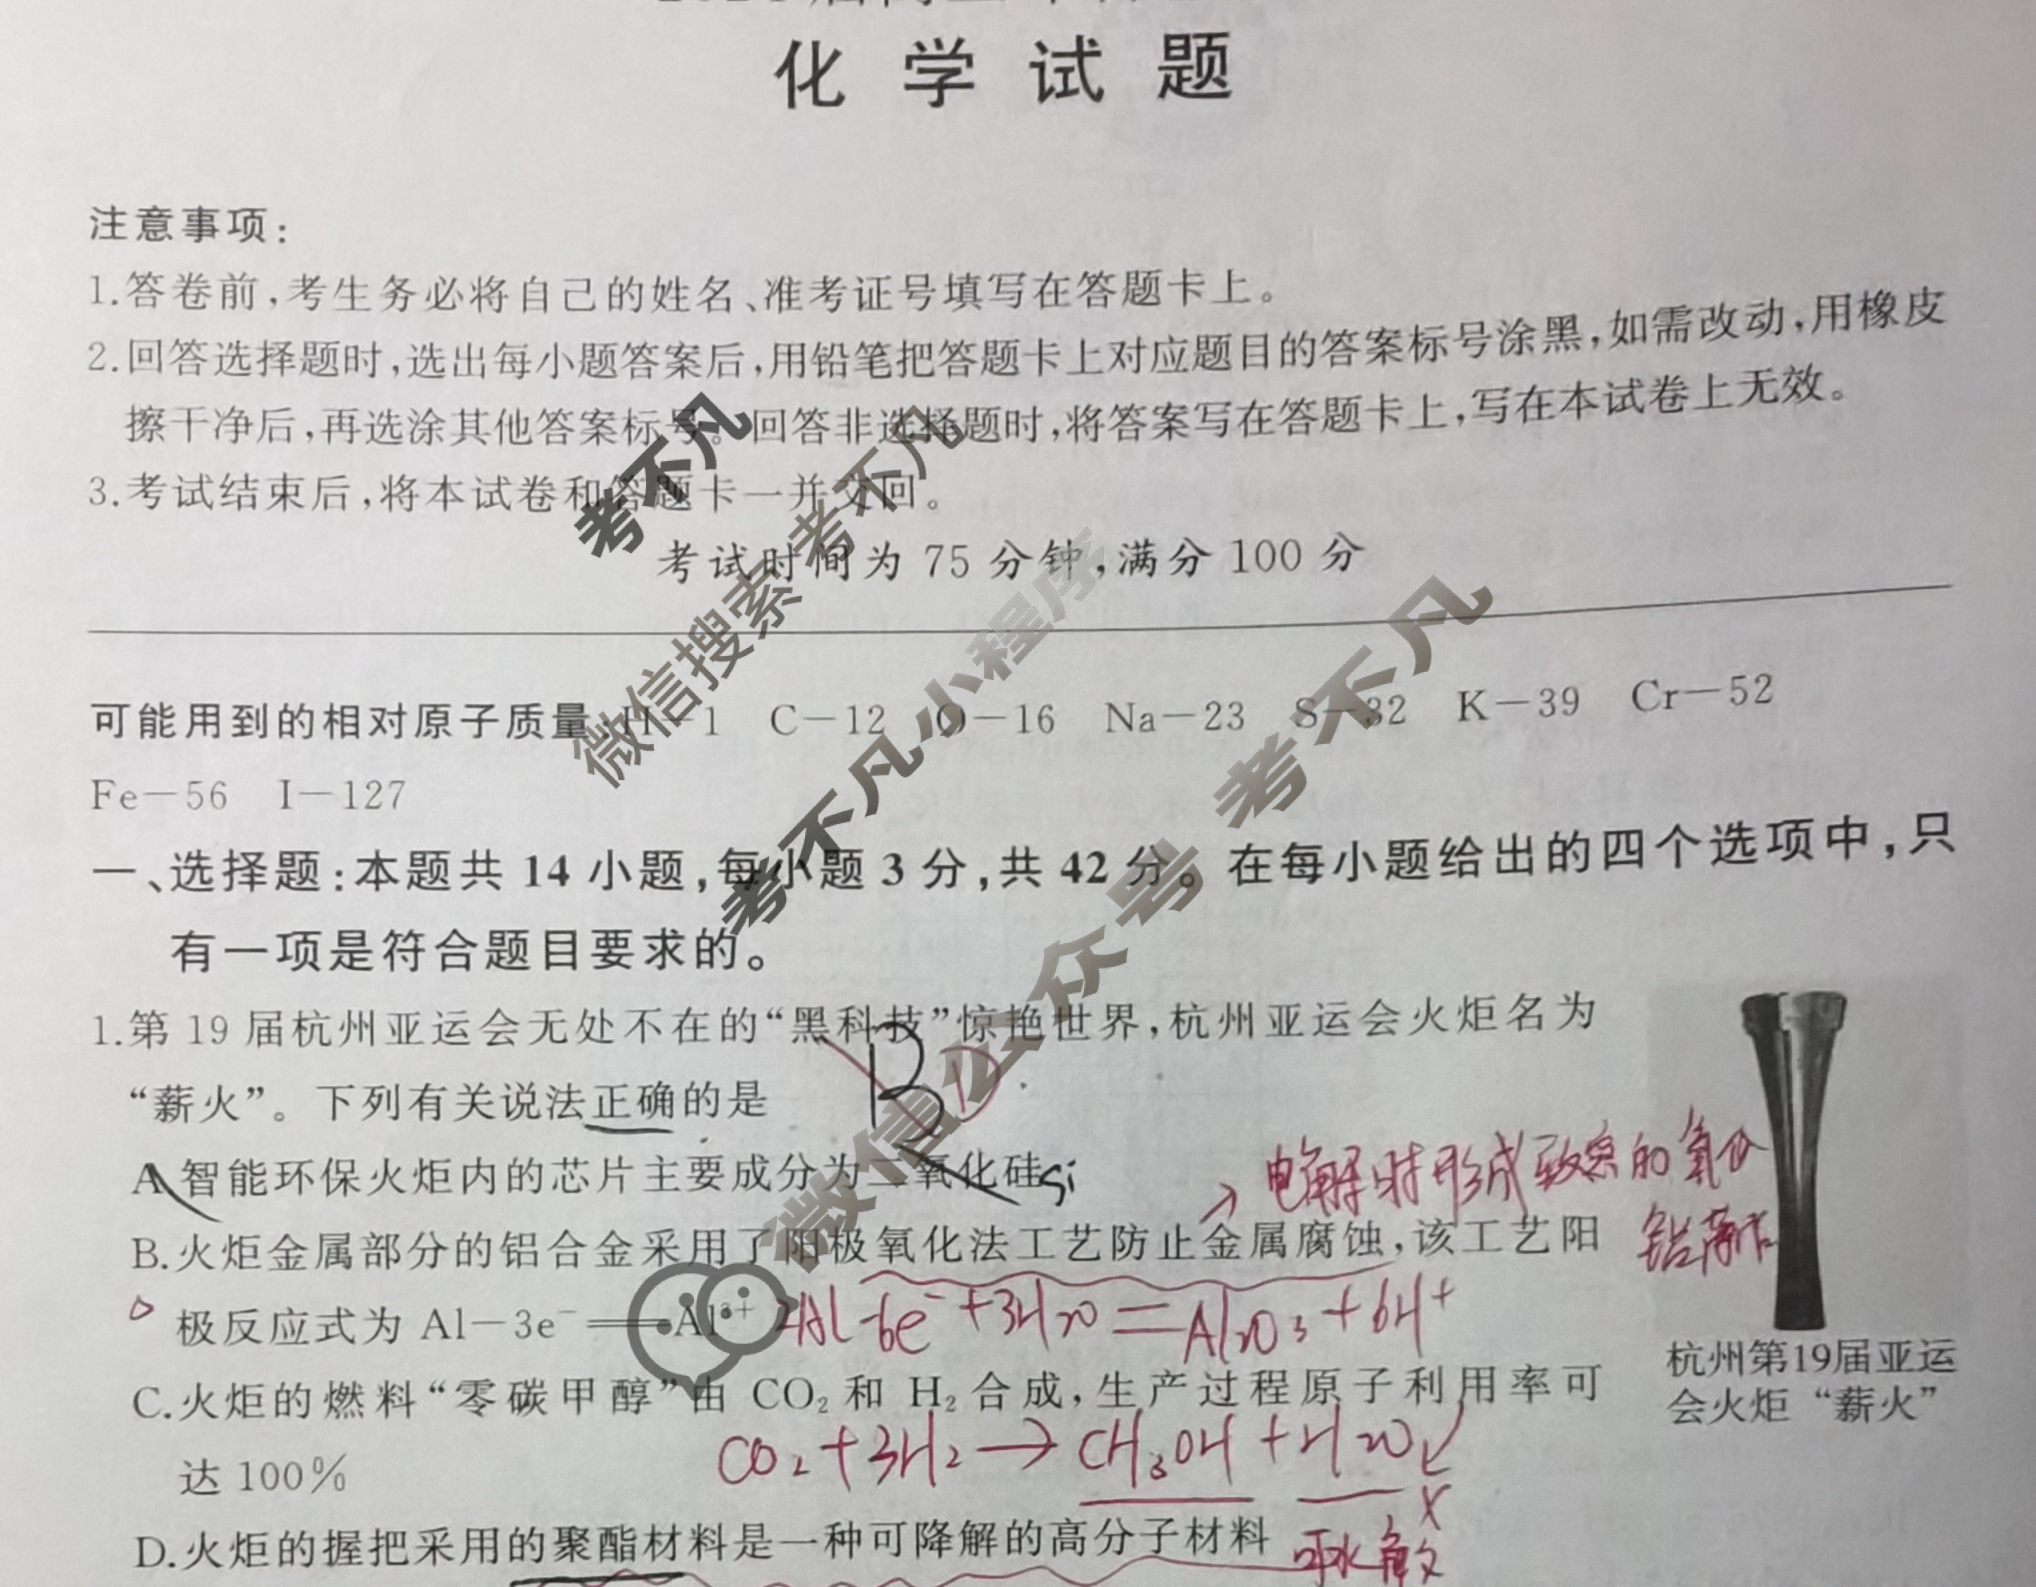 化学试题
注意事项:
1.答卷前,考生务必将自己的姓名、准考证号填写在答题卡上。
2.回答选择题时,选出每小题答案后,用铅笔把答题卡上对应题目的答案标号涂黑,如需改动,用橡皮
擦干净后,再选涂其他答案标号。回答非选择题时,将答案写在答题卡上,写在本试卷上无效。
3.考试结束后,将本试卷和答题卡一并交回。
考试时间为 75 分钟,满分 100 分
可能用到的相对原子质量:H-1 C-12 O-16 Na-23 S-32 K-39 Cr-52
Fe-56 I-127
一、选择题:本题共 14 小题,每小题 3 分,共 42 分。在每小题给出的四个选项中,只
有一项是符合题目要求的。
1.第 19 届杭州亚运会无处不在的“黑科技”惊艳世界,杭州亚运会火炬名为
“薪火”。下列有关说法正确的是
B D
A.智能环保火炬内的芯片主要成分为二氧化硅 Si
→电解时形成致密的氧化
铝薄膜
B.火炬金属部分的铝合金采用了阳极氧化法工艺防止金属腐蚀,该工艺阳
极反应式为 Al-3e⁻══Al³⁺ 2Al-6e⁻+3H₂O=Al₂O₃+6H⁺
C.火炬的燃料“零碳甲醇”由 CO₂ 和 H₂ 合成,生产过程原子利用率可
达 100%
CO₂+3H₂→CH₃OH+H₂O
×
D.火炬的握把采用的聚酯材料是一种可降解的高分子材料 可水解
杭州第19届亚运
会火炬“薪火”
考不凡
微信搜索 考不凡
考不凡小程序
微信公众号 考不凡